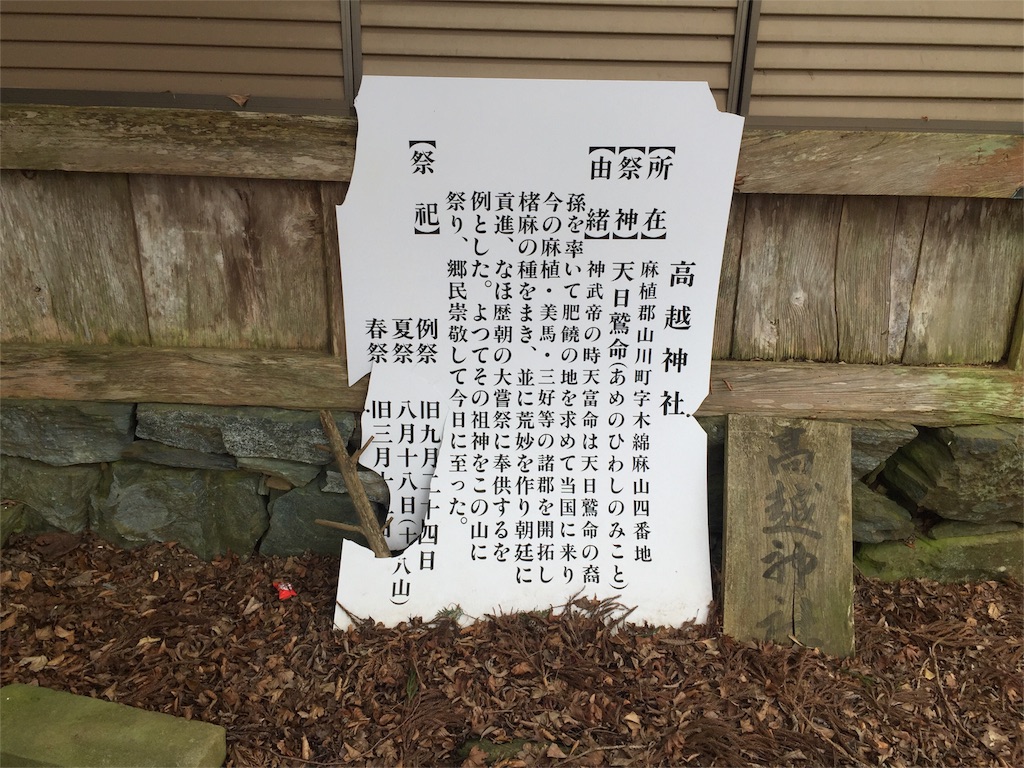 高越神社
【所在】麻植郡山川町字木綿麻山四番地
【祭神】天日鷲命(あめのひわしのみこと)
【由緒】神武帝の時天富命は天日鷲命の裔
孫を率いて肥饒の地を求めて当国に来り
今の麻植・美馬・三好等の諸郡を開拓し
楮麻の種をまき、並に荒妙を作り朝廷に
貢進、なほ歴朝の大嘗祭に奉供するを
例とした。よつてその祖神をこの山に
祭り、郷民崇敬して今日に至った。
【祭祀】例祭 旧九月二十四日
夏祭 八月十八日(十八山)
春祭 旧三月十
高越神社